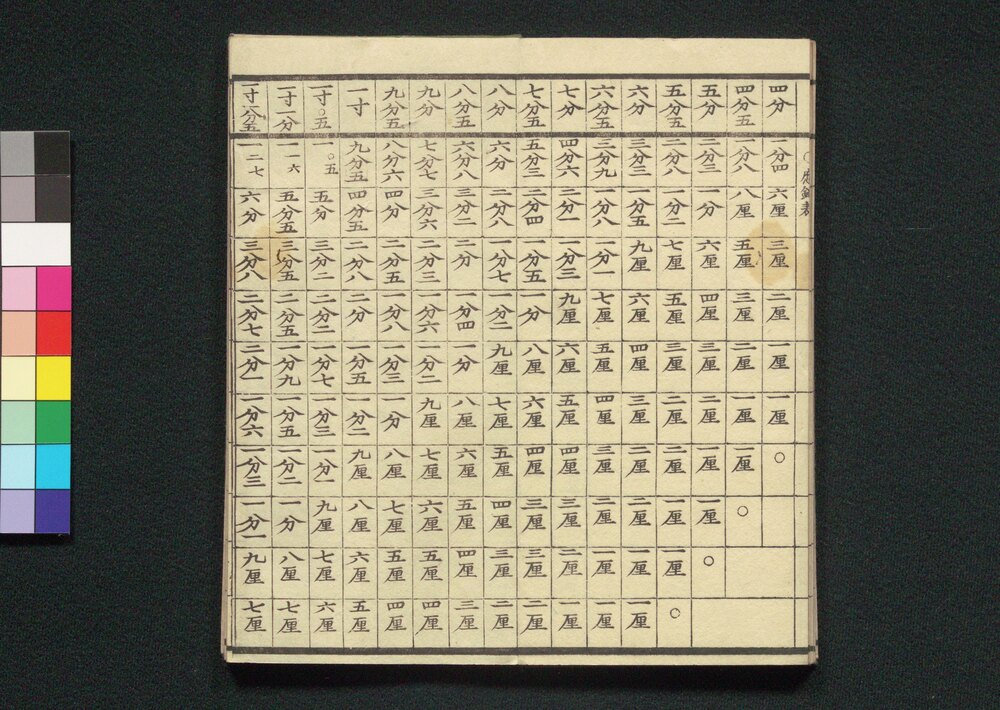 表
四分 一分四 六厘 三厘 二厘 一厘 一厘 ○
四分五 一分八 八厘 五厘 三厘 二厘 一厘 一厘 ○
五分 二分三 一分 六厘 四厘 三厘 二厘 一厘 一厘 ○
五分五 二分八 一分二 七厘 五厘 三厘 二厘 二厘 一厘 一厘 ○
六分 三分三 一分五 九厘 六厘 四厘 三厘 二厘 二厘 一厘 一厘
六分五 三分九 一分八 一分一 七厘 五厘 四厘 三厘 二厘 一厘 一厘
七分 四分六 二分一 一分三 九厘 六厘 五厘 四厘 三厘 二厘 一厘
七分五 五分三 二分四 一分五 一分 八厘 六厘 四厘 三厘 三厘 二厘
八分 六分 二分八 一分七 一分二 九厘 七厘 五厘 四厘 三厘 二厘
八分五 六分八 三分二 二分 一分四 一分 八厘 六厘 五厘 四厘 三厘
九分 七分七 三分六 二分三 一分六 一分二 九厘 七厘 六厘 五厘 四厘
九分五 八分六 四分 二分五 一分八 一分三 一分 八厘 七厘 五厘 四厘
一寸 九分五 四分五 二分八 二分 一分五 一分二 九厘 八厘 六厘 五厘
一寸○五 一○五 五分 三分二 二分二 一分七 一分三 一分一 九厘 七厘 六厘
一寸一分 一一六 五分五 三分五 二分五 一分九 一分五 一分二 一分 八厘 七厘
一寸一分五 一二七 六分 三分八 二分七 二分一 一分六 一分三 一分一 九厘 七厘